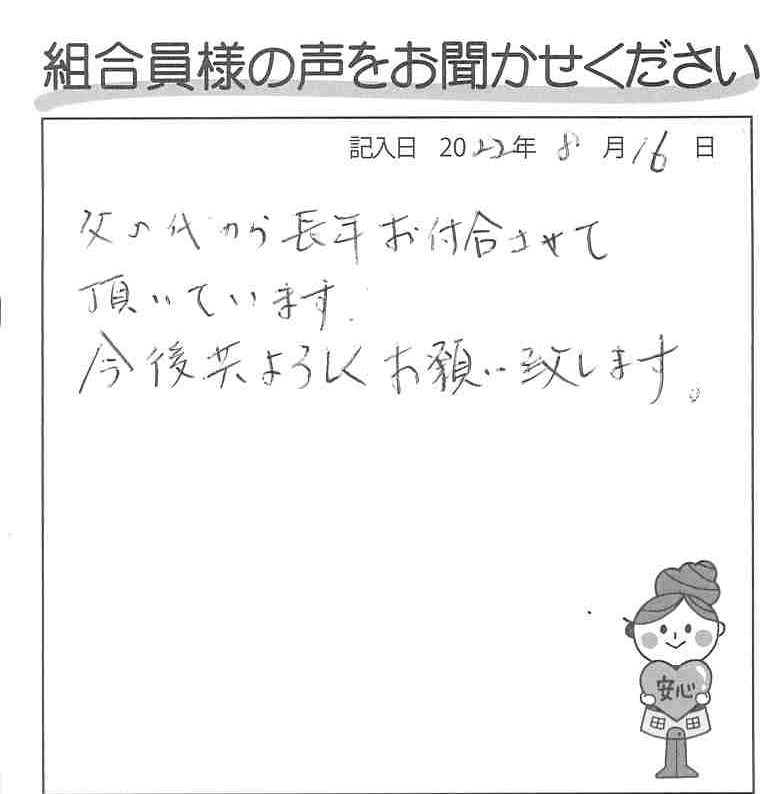 組合員様の声をお聞かせください
記入日 2022年 8月16日
父の代から長年お付合させて
頂いています.
今後共よろしくお願い致します。
安心